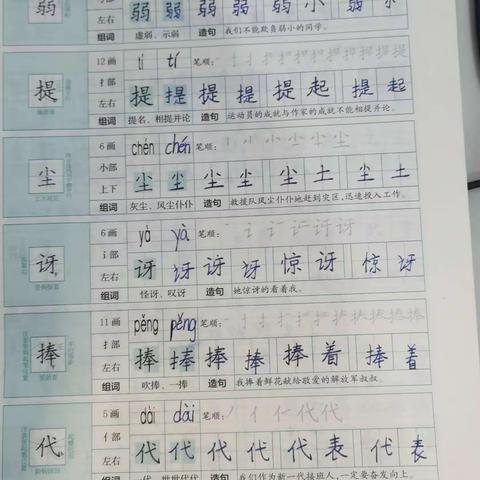 弱 弓部 弱 弱 弱 弱 弱 小 弱
左右
组词 虚弱、示弱 造句 我们不能欺负弱小的同学。
12画 tí tí 笔顺：
提 扌部 提 提 提 提 提 起 提 起
左右
组词 提名、相提并论 造句 运动员的成就与作家的成就不能相提并论。
6画 chén chén 笔顺：
尘 小部 尘 尘 尘 尘 尘 土 尘 土
上下
组词 灰尘、风尘仆仆 造句 救援队风尘仆仆地赶到灾区，迅速投入工作。
6画 yà yà 笔顺：
讶 讠部 讶 讶 讶 讶 惊 讶 惊 讶
左右
组词 怪讶、叹讶 造句 她惊讶的看着我。
11画 pěng pěng 笔顺：
捧 扌部 捧 捧 捧 捧 捧 着 捧 着
左右
组词 吹捧、一捧 造句 我捧着鲜花献给敬爱的解放军叔叔。
5画 dài dài 笔顺：
代 亻部 代 代 代 代 代 表 代 表
左右
组词 一代、世世代代 造句 我们作为新一代接班人，一定要奋发向上。